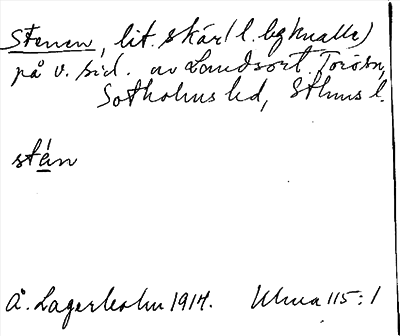 Stenen, lit. skär (l. bgknalle)
på v. sid. av Landsort. Torösn,
Sotholms hd, Sthms l.
stén
Å. Lagerholm 1917. Uhna 115:1